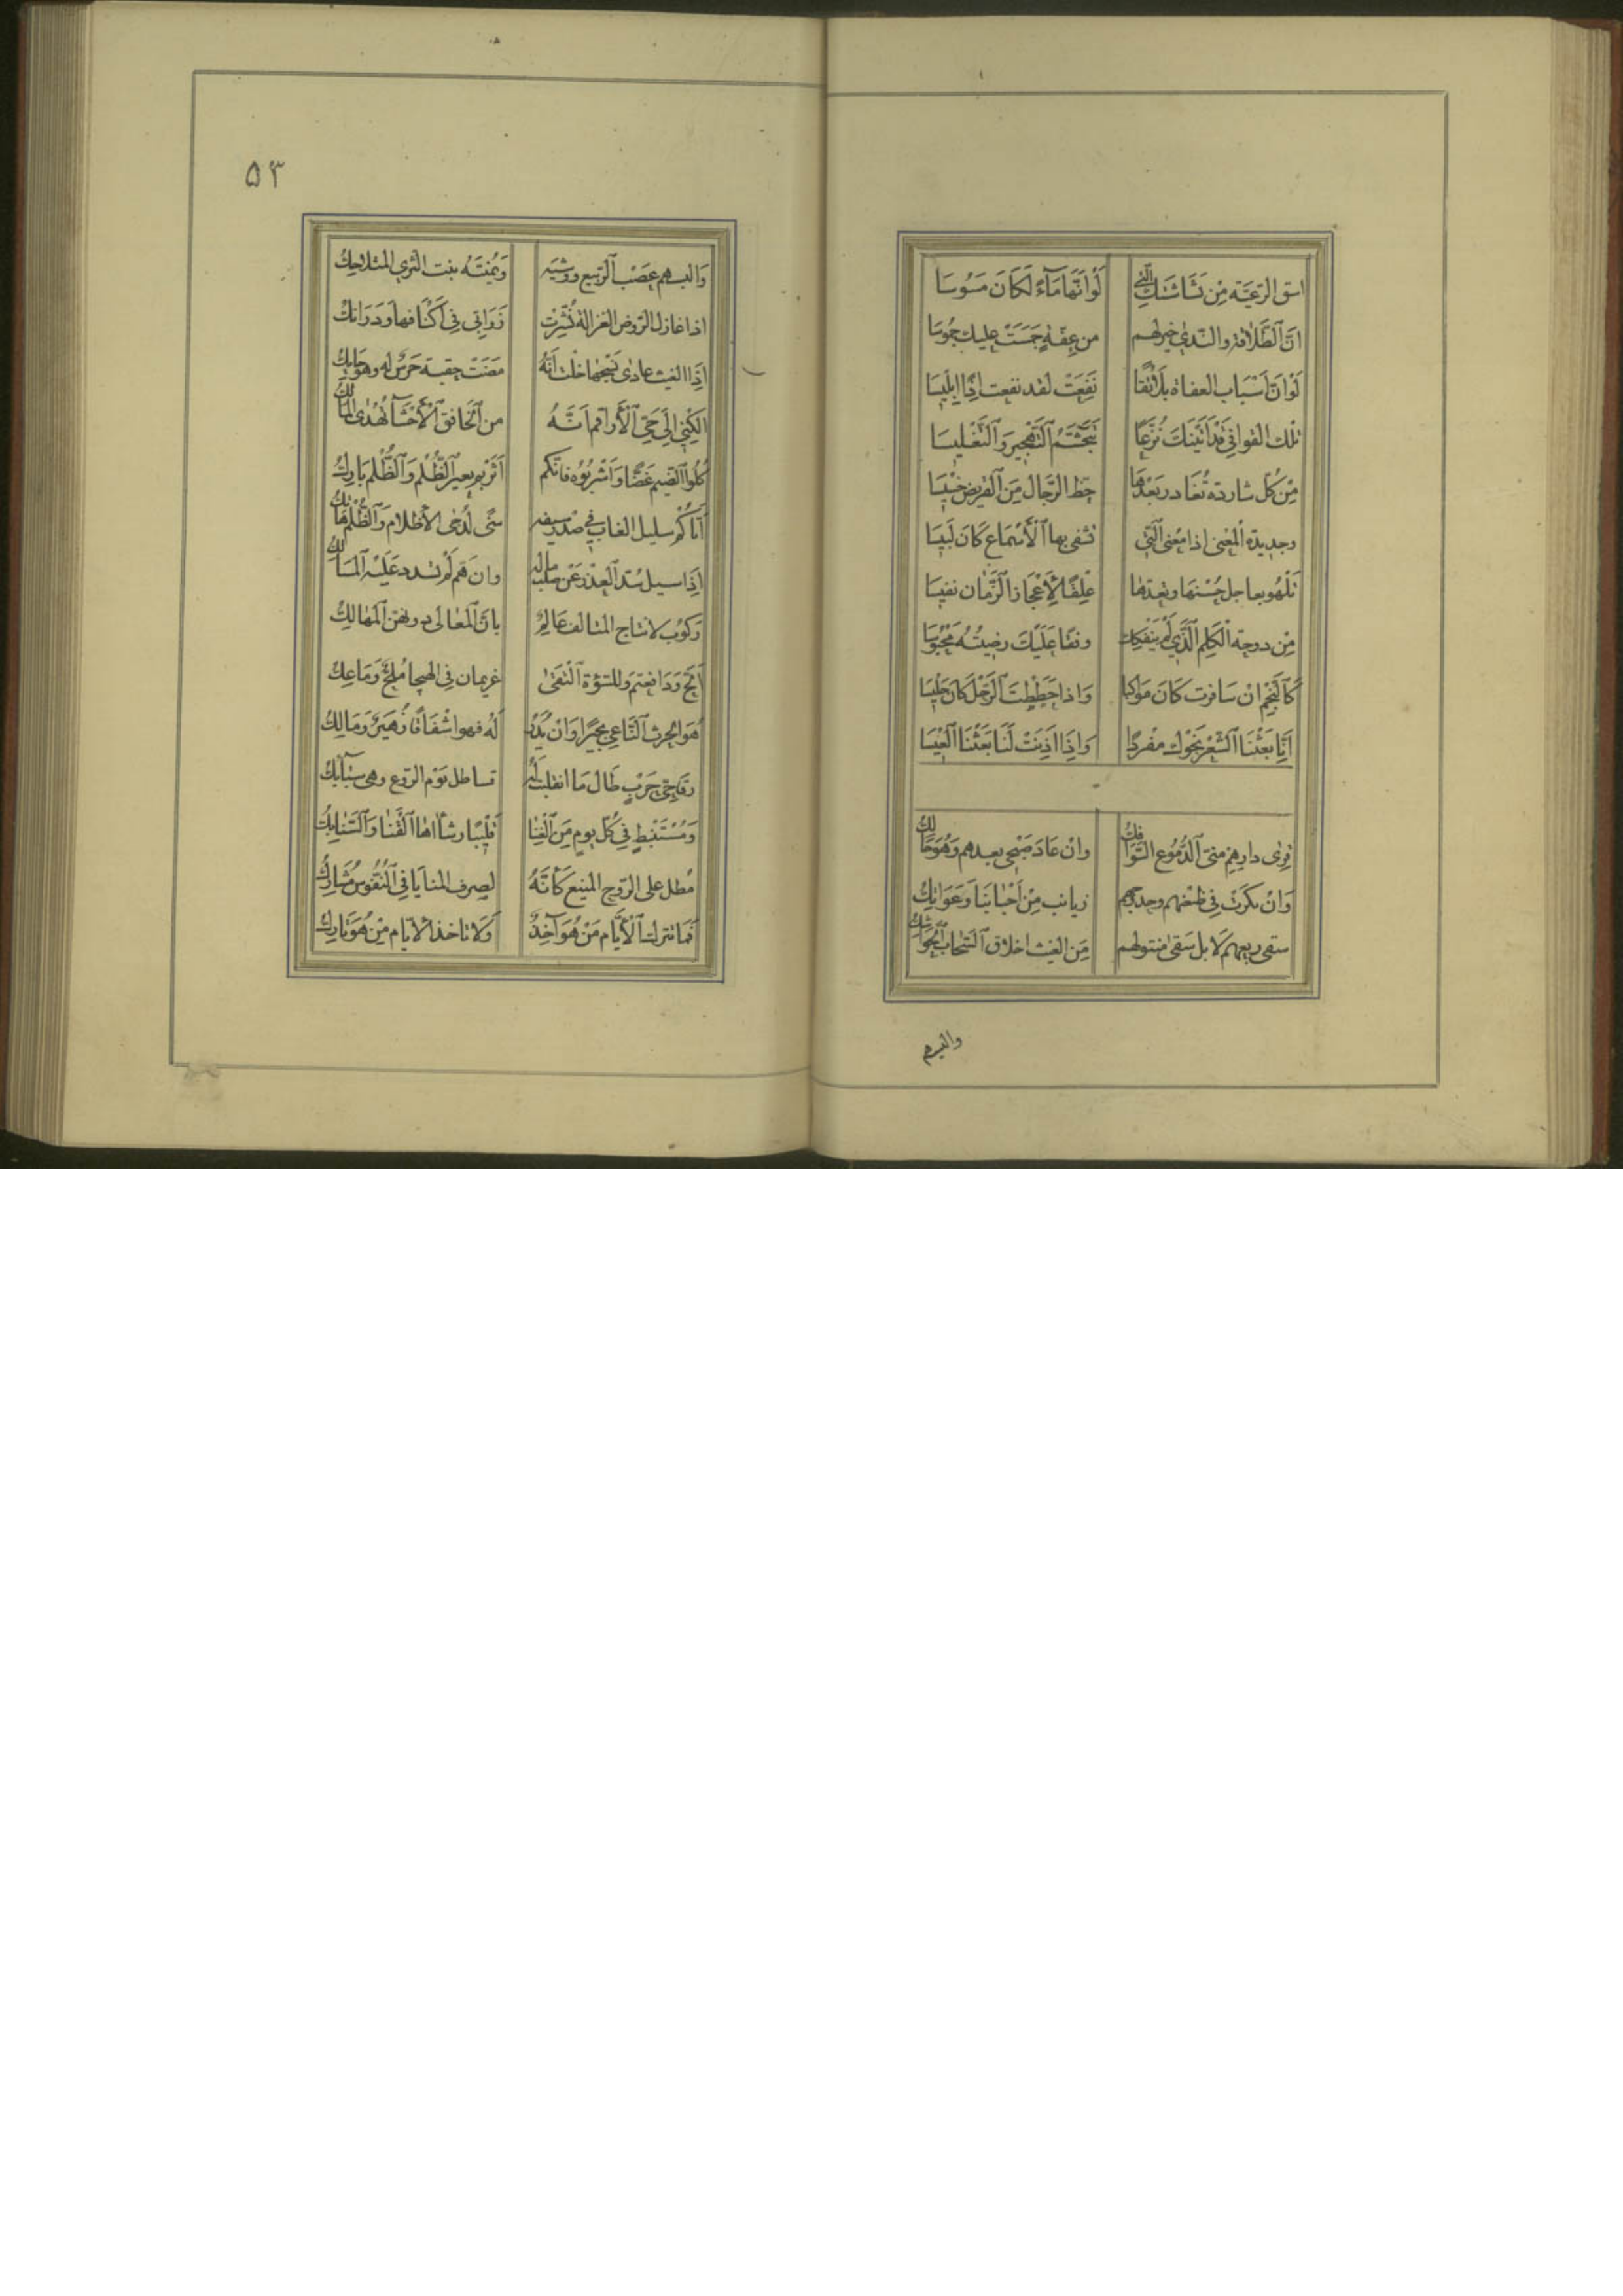 اسق الرعيّة من بَشَاشَتك الّتي لَوْ انّها مَآءٌ لَكَانَ مَسُوسَا
انّ الطَّلاقة والنّدى خير لهم من عِفّةٍ جَمَسَتْ عليك جُمُوسَا
لَوْ انّ اَسْبَاب العفاة بلا تُقًا نَفَعَتْ لقد نفعت اِذًا اِبْلِيسَا
تلك القوافي قَدْ اَتَيْنَكَ نُزَّعًا تتجشّم التّهْجِيرَ وَالتَّغْلِيسَا
مِنْ كُلّ شاردة تُغَادر بَعْدَهَا حظ الرّجال مِنَ القريض خَسِيسَا
وجديدة المَعْنى اذا مَعْنى الّتي تشقى بها الأَسْمَاع كَانَ لَبِيسَا
تَلْهُو بعاجل حُسْنهَا وتعدّها عِلْقًا لِأَعْجَاز الزَّمان نفيسَا
مِن دوحة الكَلِم الّذي لَمْ يَنْفَكِك وقفًا عَلَيْكَ رصينُهُ مَحْبُوسَا
كَالنَّجْم انْ سَافرت كَانَ مَوَاكبا وَاذا حَطَطتَ الرَّحْلَ كَانَ جَلِيسَا
اِنّا بَعَثْنَا الشّعْر نَحْوك مفردًا وَاِذَا اَذِنْتَ لَنَا بَعَثْنَا العِيسَا
قِرى دارهِم منّي الدّمُوع السَّوَافِكُ وان عَادَ صُبْحي بعدهم وَهُوَ حَالِكُ
وَانْ بَكَرَتْ في ظعنهم وحدوجهم زيانب مِنْ اَحْبَابِنَا وَعَوَاتِكُ
سقى ربعهم لَا بل سَقى منتولهم مِنَ الغيث اخلاق السَّحَاب الحَوَاشِكُ
والبسهم
٥٣
وَالبسهم عَصْب الرّبيع ووشيَه وَيُمْنَتَه نبت الثرى المتلاحِكُ
اذا غازل الرّوض الغزالة نُشِّرَتْ زَرَابِي في اَكْنَافهَا وَدَرَانِكُ
اِذَا الغيث غادى نَسْجهَا خلت اَنّهُ مَضَتْ حقبة حَرْسٌ له وهو حَايِكُ
الكني الى حَيّ الأَرَاقم اَنَّهُ من الخافق الأَحْشَآ تُهْدى المَآلِكُ
كُلُوا الضيم غَضًّا وَاَشْرَبُوه فانّكم اَثَرْتم بعير الظُّلْم وَالظُّلْم بَارِكُ
اَتَاكُمْ سليل الغاب في صَدْر سيفه سنًى لدجى الأظلام وَالظُّلْم هَاتِكُ
اِذَا سيل سُدّ العُذْر عَنْ صلب مالِه وان هَمّ لَمْ تسدد عَلَيْه المَسَالِكُ
رَكُوبٌ لاثباج المتالف عَالِمٌ بانّ المَعَالي دونهنّ المَهالِكُ
اَلحّ وَدَافعتم وللسّوْءة التقى غريمان في الهيجا مُلِحٌّ وَمَاعِكُ
هُوَ الحرث النّاعي بجيرًا وَانْ يُدَنْ لَهُ فهو اشْفَاقًا زُهَيْرٌ وَمَالِكُ
رقاحيّ حَرْبٍ طَالَ مَا انقلبت لَهُ قساطل يَوْم الروع وهي سَبَآئِكُ
وَمُسْتَنْبِط في كُلّ يوم مِنَ الغِنَا قَلِيبًا رشَآاها القَنَا وَالسَّنَابِكُ
مُطل على الرّوح المنيع كَأَنّهُ لصرف المنايَا في النُّفُوس مُشَارِكُ
فَمَا تترك الأَيَّام مَنْ هُوَ آخِذٌ وَلَا تاخذ الأيّام مَنْ هُوَ تَارِكُ